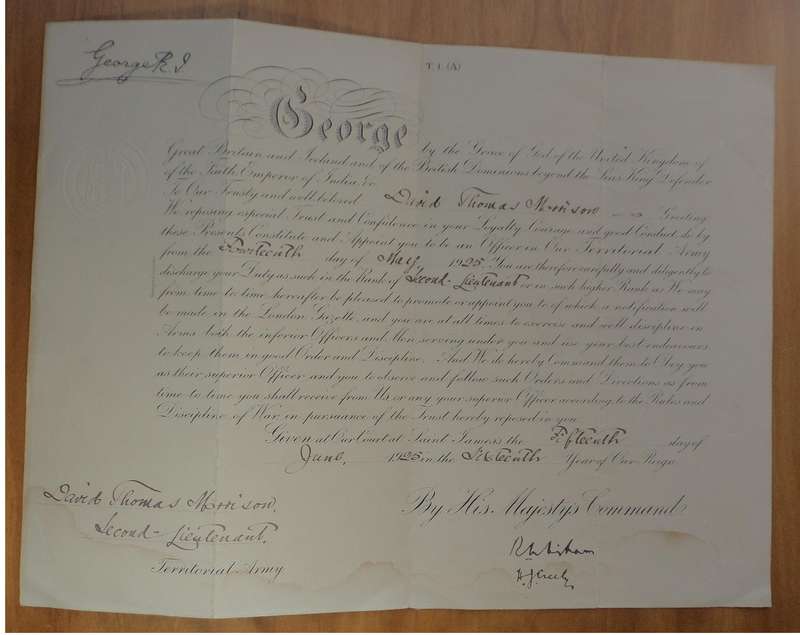 George R.I.
T. 1. (A)
George
by the Grace of God of the United Kingdom of
Great Britain and Ireland and of the British Dominions beyond the Seas King Defender
of the Faith Emperor of India &c
To Our Trusty and well beloved David Thomas Morrison Greeting
We reposing especial Trust and Confidence in your Loyalty Courage and good Conduct do by
these Presents Constitute and Appoint you to be an Officer in Our Territorial Army
from the Fourteenth day of May, 1925. You are therefore carefully and diligently to
discharge your Duty as such in the Rank of Second-Lieutenant or in such higher Rank as We may
from time to time hereafter be pleased to promote or appoint you to of which a notification will
be made in the London Gazette, and you are at all times to exercise and well discipline in
Arms both the inferior Officers and Men serving under you and use your best endeavours
to keep them in good Order and Discipline. And We do hereby Command them to Obey you
as their superior Officer and you to observe and follow such Orders and Directions as from
time to time you shall receive from Us or any your superior Officer according to the Rules and
Discipline of War in pursuance of the Trust hereby reposed in you
Given at Our Court at Saint James's the Fifteenth day of
June, 1925 in the Sixteenth Year of Our Reign
By His Majesty's Command
David Thomas Morrison,
Second-Lieutenant.
Territorial Army